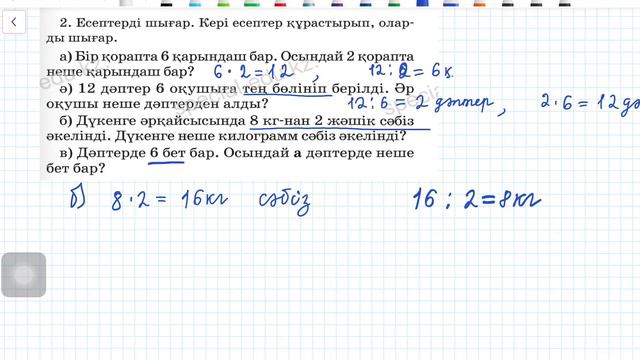 2. Есептерді шығар. Кері есептер құрастырып, олар-
ды шығар.
а) Бір қорапта 6 қарындаш бар. Осындай 2 қорапта
неше қарындаш бар? 6 · 2 = 12 , 12 : 2 = 6 қ.
ә) 12 дәптер 6 оқушыға тең бөлініп берілді. Әр
оқушы неше дәптерден алды? 12 : 6 = 2 дәптер, 2 · 6 = 12 дә
б) Дүкенге әрқайсысында 8 кг-нан 2 жәшік сәбіз
әкелінді. Дүкенге неше килограмм сәбіз әкелінді?
в) Дәптерде 6 бет бар. Осындай а дәптерде неше
бет бар?
б) 8 · 2 = 16 кг сәбіз 16 : 2 = 8 кг